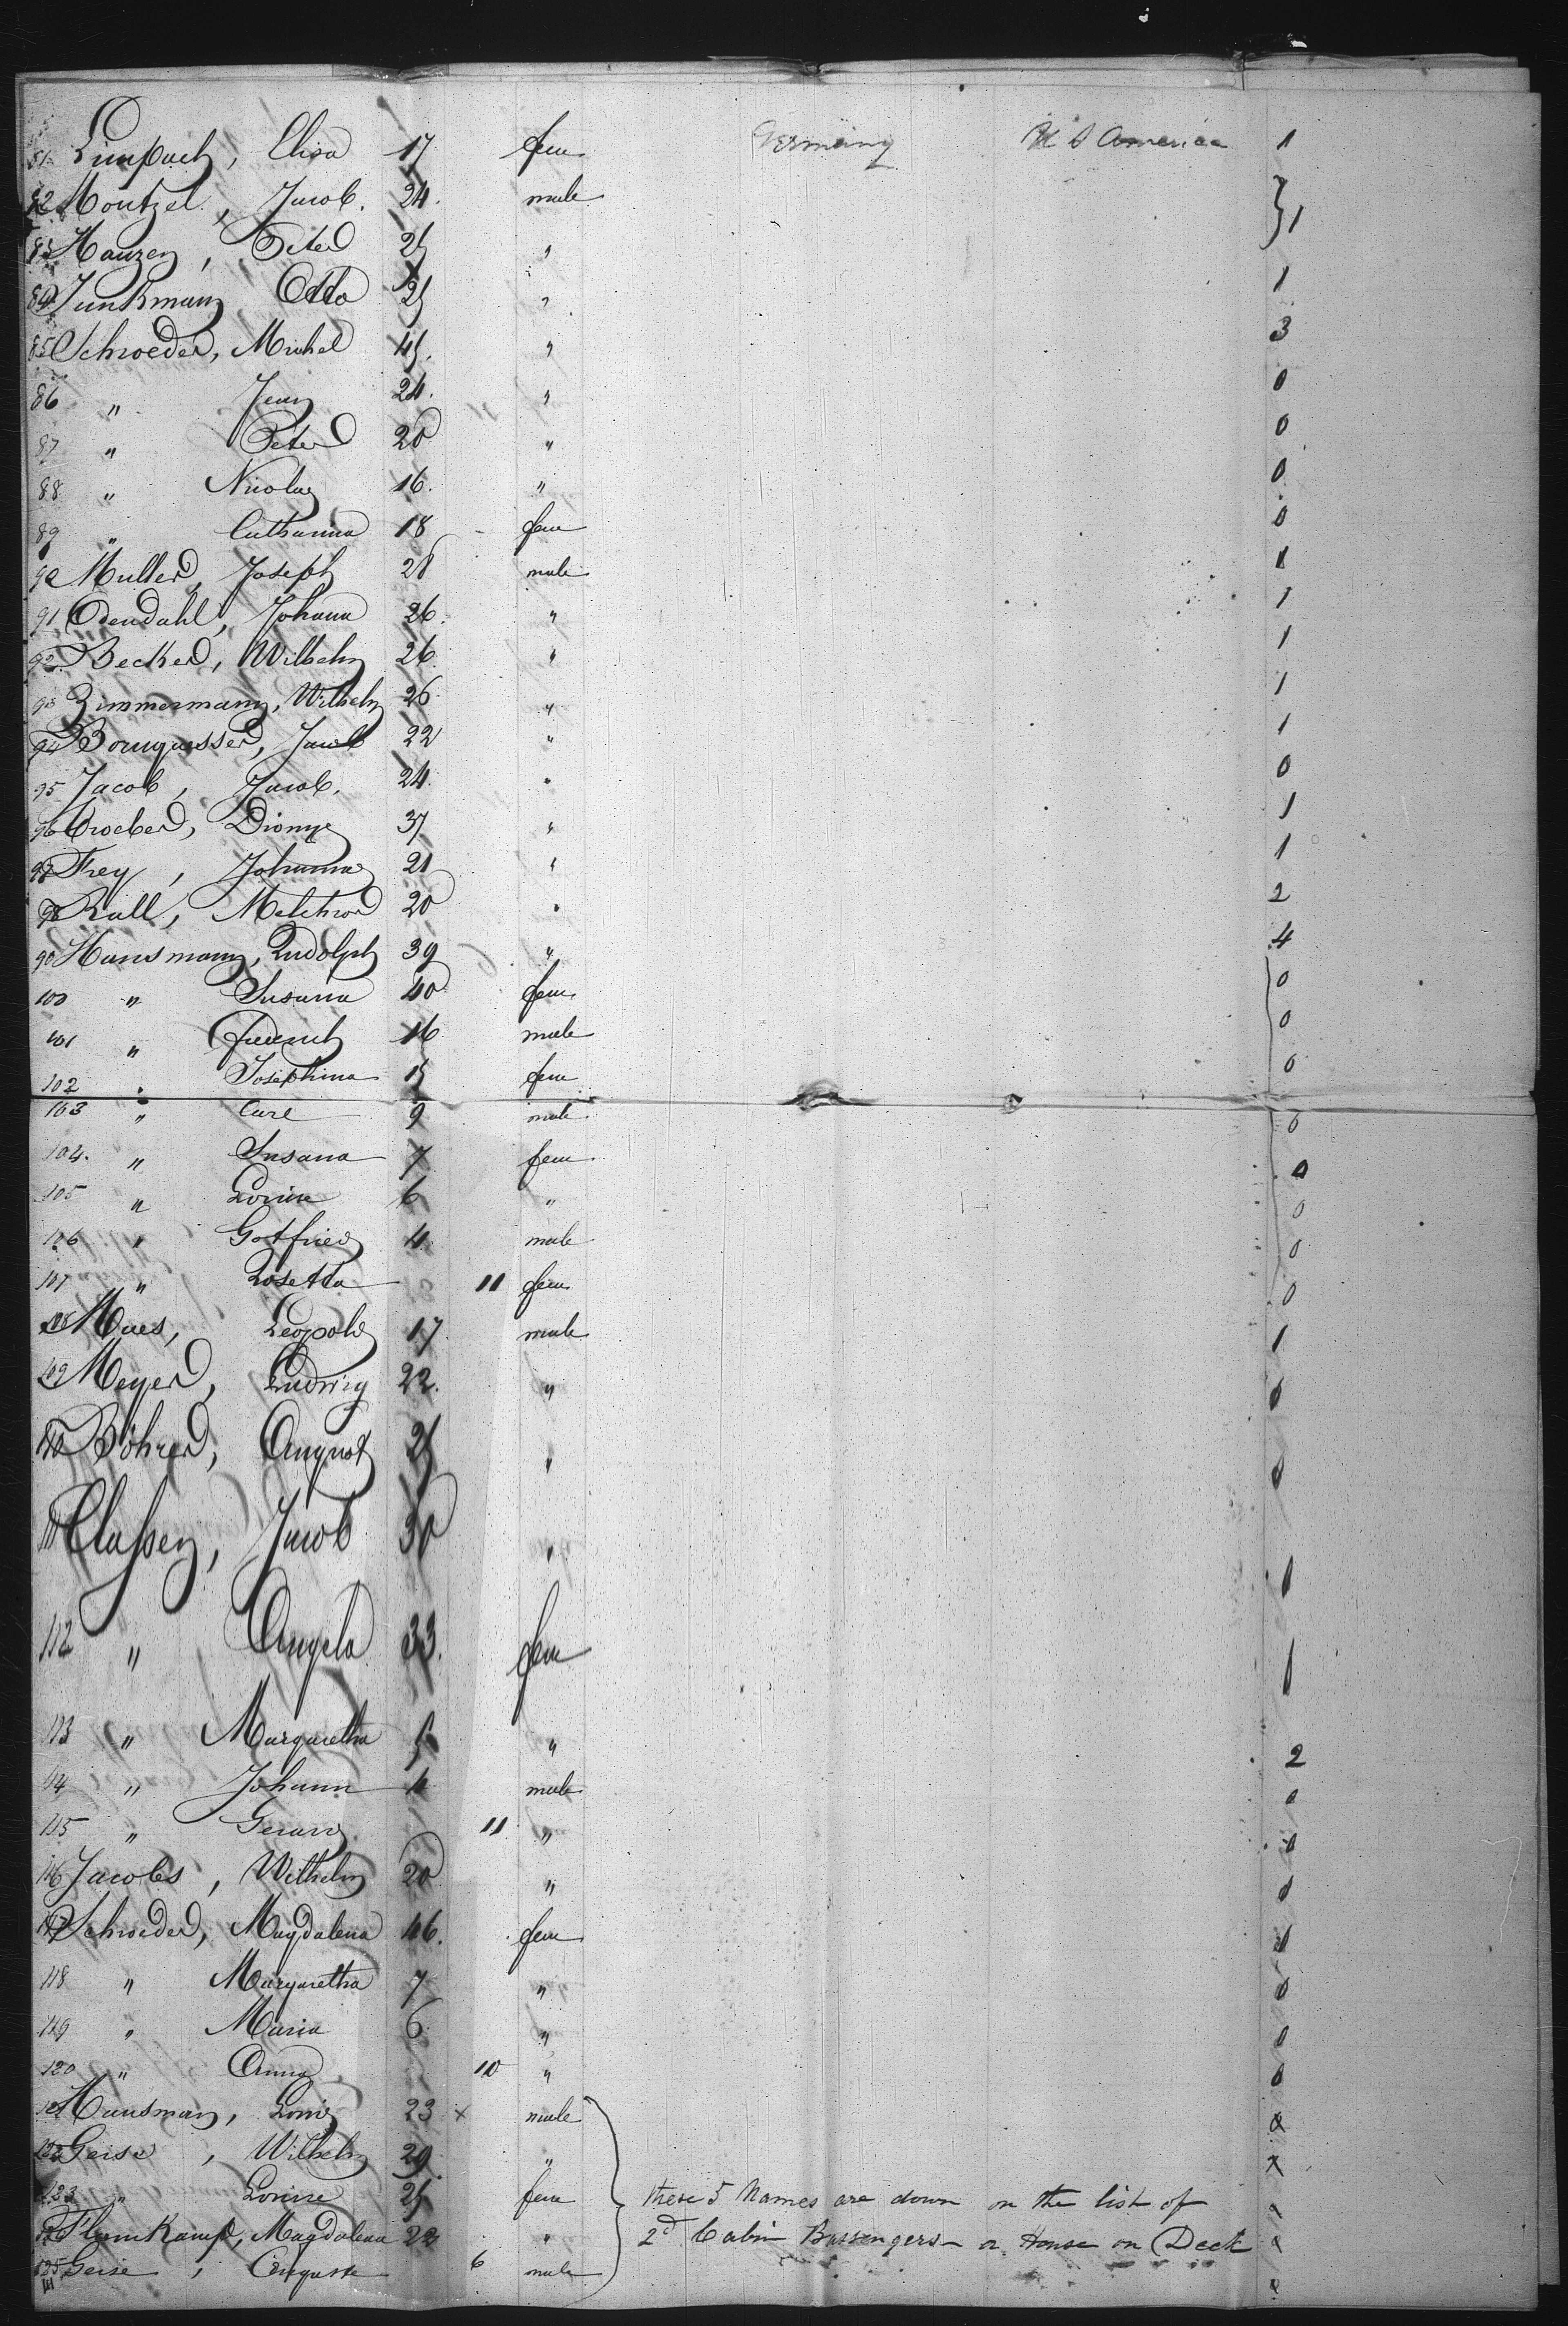 81 Limpach, Elisa 17 fem Germany U S America 1
82 Moutzel, Jacob. 24. male } 1
83 Hauzen, Peter 25 "
84 Junkmann Otto 25 " 1
85 Schroeder, Michel 45. " 3
86 " Jean 24. " 0
87 " Peter 20 " 0
88 " Nicolas 16. " 0
89 " Catharina 18 fem 0
90 Muller, Joseph 28 male 1
91 Odendahl, Johann 26. " 1
92 Becker, Wilhelm 26 " 1
93 Zimmermann, Wilhelm 26 " 1
94 Jacob 22 " 1
95 Jacob, Jacob. 24. " 0
96 Croeber, Dionys 37 " 1
97 Frey, Johannes 21 " 1
98 Rall, Melchior 20 " 2
90 Hansmann, Rudolph 39 " 4
100 " Susana 40 fem 0
101 " Friedrich 16 male 0
102 " Josephina 15 fem 0
103 " Carl 9 male 0
104. " Susana 7 fem 0
105 " Louise 6 " 0
106 " Gotfried 4 male 0
107 " Rosetta 11 fem 0
108 Maes, Leopold 17 male 1
109 Meyer, Ludwig 22. " 0
110 Böhrer, August 25 " 0
111 Classen, Jacob 30 " 1
112 " Angela 33. fem 1
113 " Margaretha 5 " 2
114 " Johann 4 male 0
115 " Gerard 11 " 0
116 Jacobs, Wilhelm 20 " 1
117 Schroeder, Magdalena 46. fem 1
118 " Margaretha 7 " 0
119 " Maria 6 " 0
120 " Anna 10 " 0
121 Hansman, Louis 23 x male x
122 Geise, Wilhelm 29 " x
123 " Louise 25 fem these 5 Names are down on the list of
124 Flumkamp, Magdalena 22 " 2d Cabin Passengers or House on Deck
125 Geise, Auguste 6 male